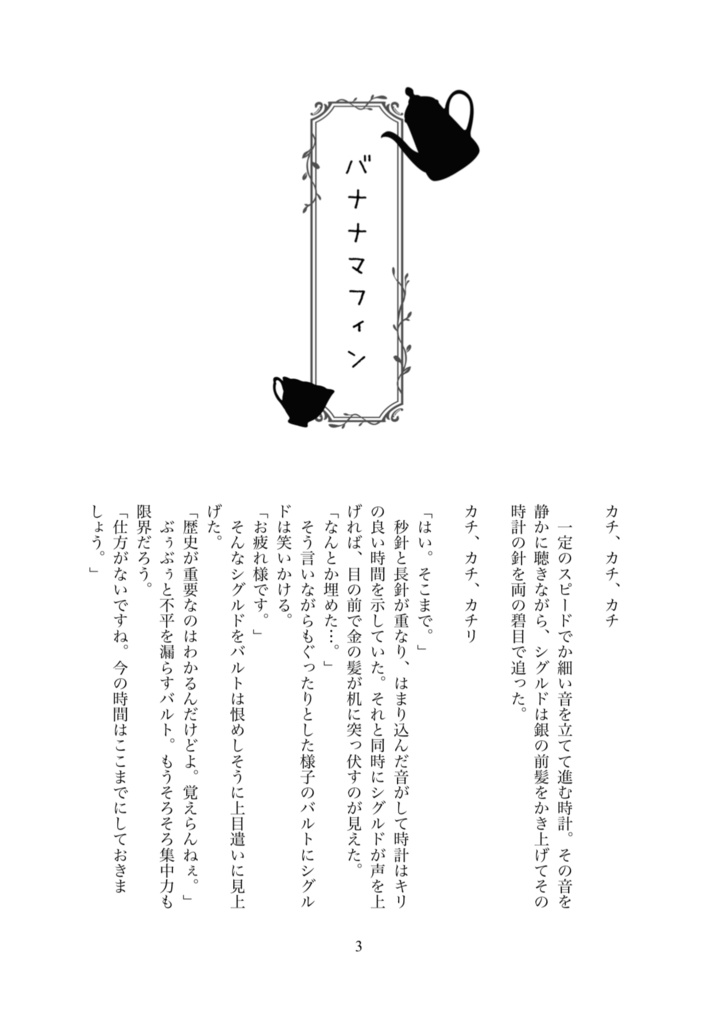 バナナマフィン
カチ、カチ、カチ
一定のスピードでか細い音を立てて進む時計。その音を
静かに聴きながら、シグルドは銀の前髪をかき上げてその
時計の針を両の碧目で追った。
カチ、カチ、カチリ
「はい。そこまで。」
秒針と長針が重なり、はまり込んだ音がして時計はキリ
の良い時間を示していた。それと同時にシグルドが声を上
げれば、目の前で金の髪が机に突っ伏すのが見えた。
「なんとか埋めた…。」
そう言いながらもぐったりとした様子のバルトにシグル
ドは笑いかける。
「お疲れ様です。」
そんなシグルドをバルトは恨めしそうに上目遣いに見上
げた。
「歴史が重要なのはわかるんだけどよ。覚えらんねぇ。」
ぶぅぶぅと不平を漏らすバルト。もうそろそろ集中力も
限界だろう。
「仕方がないですね。今の時間はここまでにしておきま
しょう。」
3